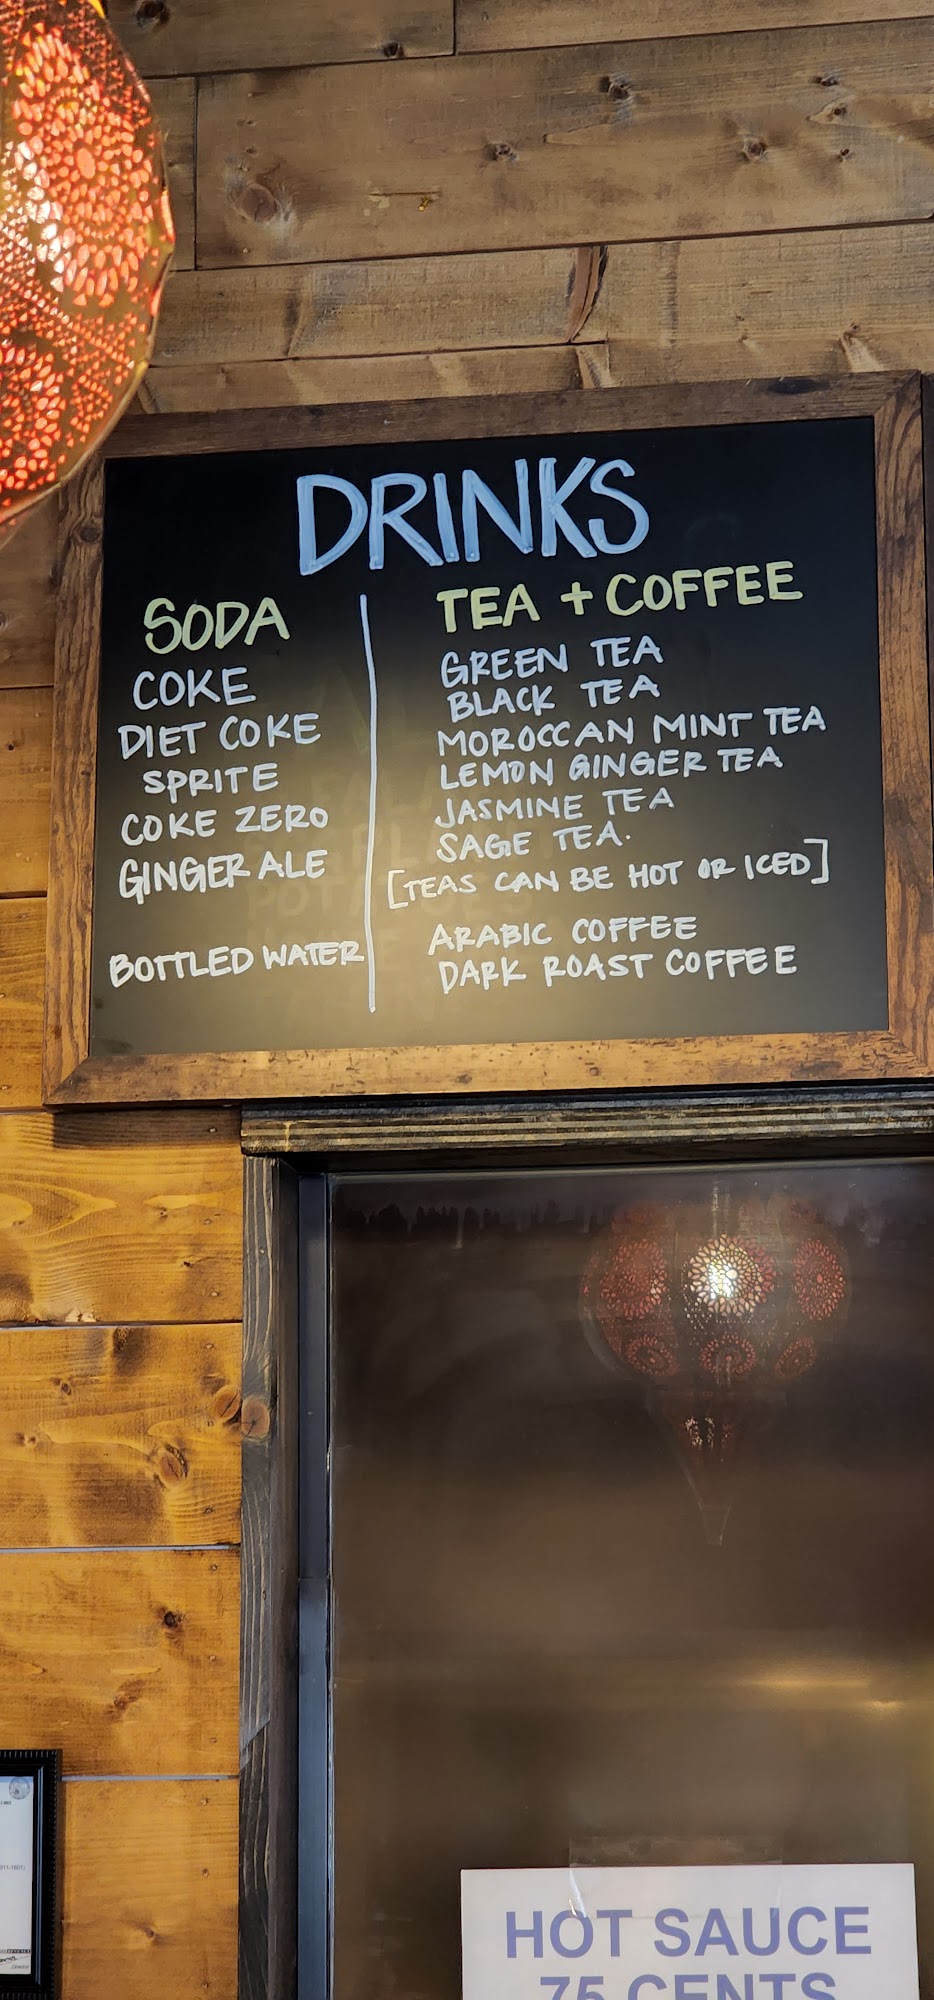 DRINKS
SODA
COKE
DIET COKE
SPRITE
COKE ZERO
GINGER ALE
BOTTLED WATER
TEA + COFFEE
GREEN TEA
BLACK TEA
MOROCCAN MINT TEA
LEMON GINGER TEA
JASMINE TEA
SAGE TEA.
[TEAS CAN BE HOT OR ICED]
ARABIC COFFEE
DARK ROAST COFFEE
HOT SAUCE
75 CENTS